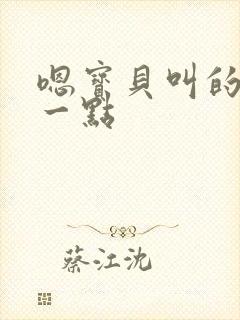 嗯寶貝叫的
一點
蔡江沈